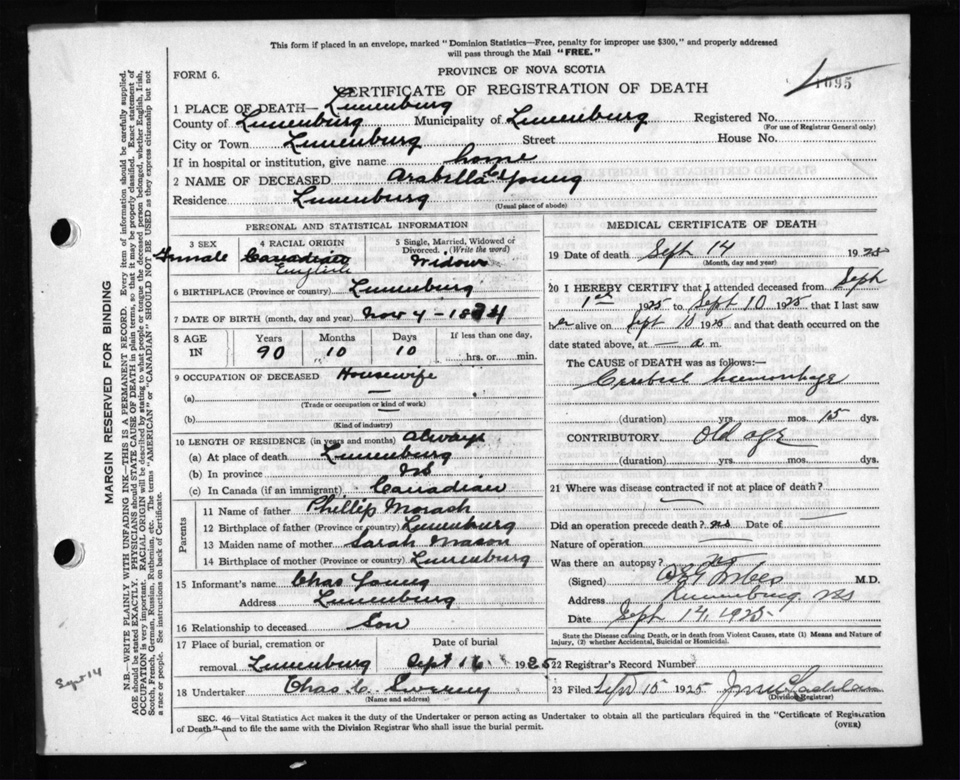 This form if placed in an envelope, marked "Dominion Statistics—Free, penalty for improper use $300," and properly addressed
will pass through the Mail "FREE."
FORM 6.
PROVINCE OF NOVA SCOTIA
CERTIFICATE OF REGISTRATION OF DEATH
1095
1 PLACE OF DEATH— Lunenburg
County of Lunenburg Municipality of Lunenburg Registered No.
(For use of Registrar General only)
City or Town Lunenburg Street House No.
If in hospital or institution, give name home
2 NAME OF DECEASED Arabella Young
Residence Lunenburg
(Usual place of abode)
PERSONAL AND STATISTICAL INFORMATION
3 SEX 4 RACIAL ORIGIN 5 Single, Married, Widowed or Divorced. (Write the word)
Female Canadian English Widow
6 BIRTHPLACE (Province or country) Lunenburg
7 DATE OF BIRTH (month, day and year) Nov 4 - 1834
8 AGE IN Years Months Days If less than one day,
90 10 10 hrs. or min.
9 OCCUPATION OF DECEASED Housewife
(a) —
(Trade or occupation or kind of work)
(b) —
(Kind of industry)
10 LENGTH OF RESIDENCE (in years and months) always
(a) At place of death Lunenburg
(b) In province NS
(c) In Canada (if an immigrant) Canadian
Parents
11 Name of father Phillip Morash
12 Birthplace of father (Province or country) Lunenburg
13 Maiden name of mother Sarah Mason
14 Birthplace of mother (Province or country) Lunenburg
15 Informant's name Chas Young
Address Lunenburg
16 Relationship to deceased Son
17 Place of burial, cremation or removal Date of burial
Lunenburg Sept 16 1925
18 Undertaker Chas C. Sweeny
(Name and address)
MEDICAL CERTIFICATE OF DEATH
19 Date of death Sept 14 1925
(Month, day and year)
20 I HEREBY CERTIFY that I attended deceased from Sept
1st 1925 to Sept 10 1925 that I last saw
her alive on Sept 10 1925 and that death occurred on the
date stated above, at — a m.
The CAUSE OF DEATH was as follows:—
Cerebral haemorrhage
(duration) yrs. mos. 15 dys.
CONTRIBUTORY Old age
(duration) yrs. mos. dys.
21 Where was disease contracted if not at place of death?
—
Did an operation precede death? no Date of —
Nature of operation —
Was there an autopsy? no
(Signed) M.D.
Address Lunenburg NS
Date Sept 14, 1925.
State the Disease causing Death, or in death from Violent Causes, state (1) Means and Nature of
Injury, (2) whether Accidental, Suicidal or Homicidal.
22 Registrar's Record Number
23 Filed Sept 15 1925
(Division Registrar)
SEC. 46—Vital Statistics Act makes it the duty of the Undertaker or person acting as Undertaker to obtain all the particulars required in the "Certificate of Registration
of Death" and to file the same with the Division Registrar who shall issue the burial permit.
(OVER)
MARGIN RESERVED FOR BINDING
N.B.—WRITE PLAINLY WITH UNFADING INK—THIS IS A PERMANENT RECORD. Every item of information should be carefully supplied.
AGE should be stated EXACTLY. PHYSICIANS should STATE CAUSE OF DEATH in plain terms, so that it may be properly classified. Exact statement of
OCCUPATION is very important. RACIAL ORIGIN will be described by stating to what people or tongue the deceased person belonged, whether English, Irish,
Scotch, French, German, Russian, Ruthenian, etc. The terms "AMERICAN" or "CANADIAN" SHOULD NOT BE USED as they express citizenship but not
a race or people. See instructions on back of Certificate.
Sept 14